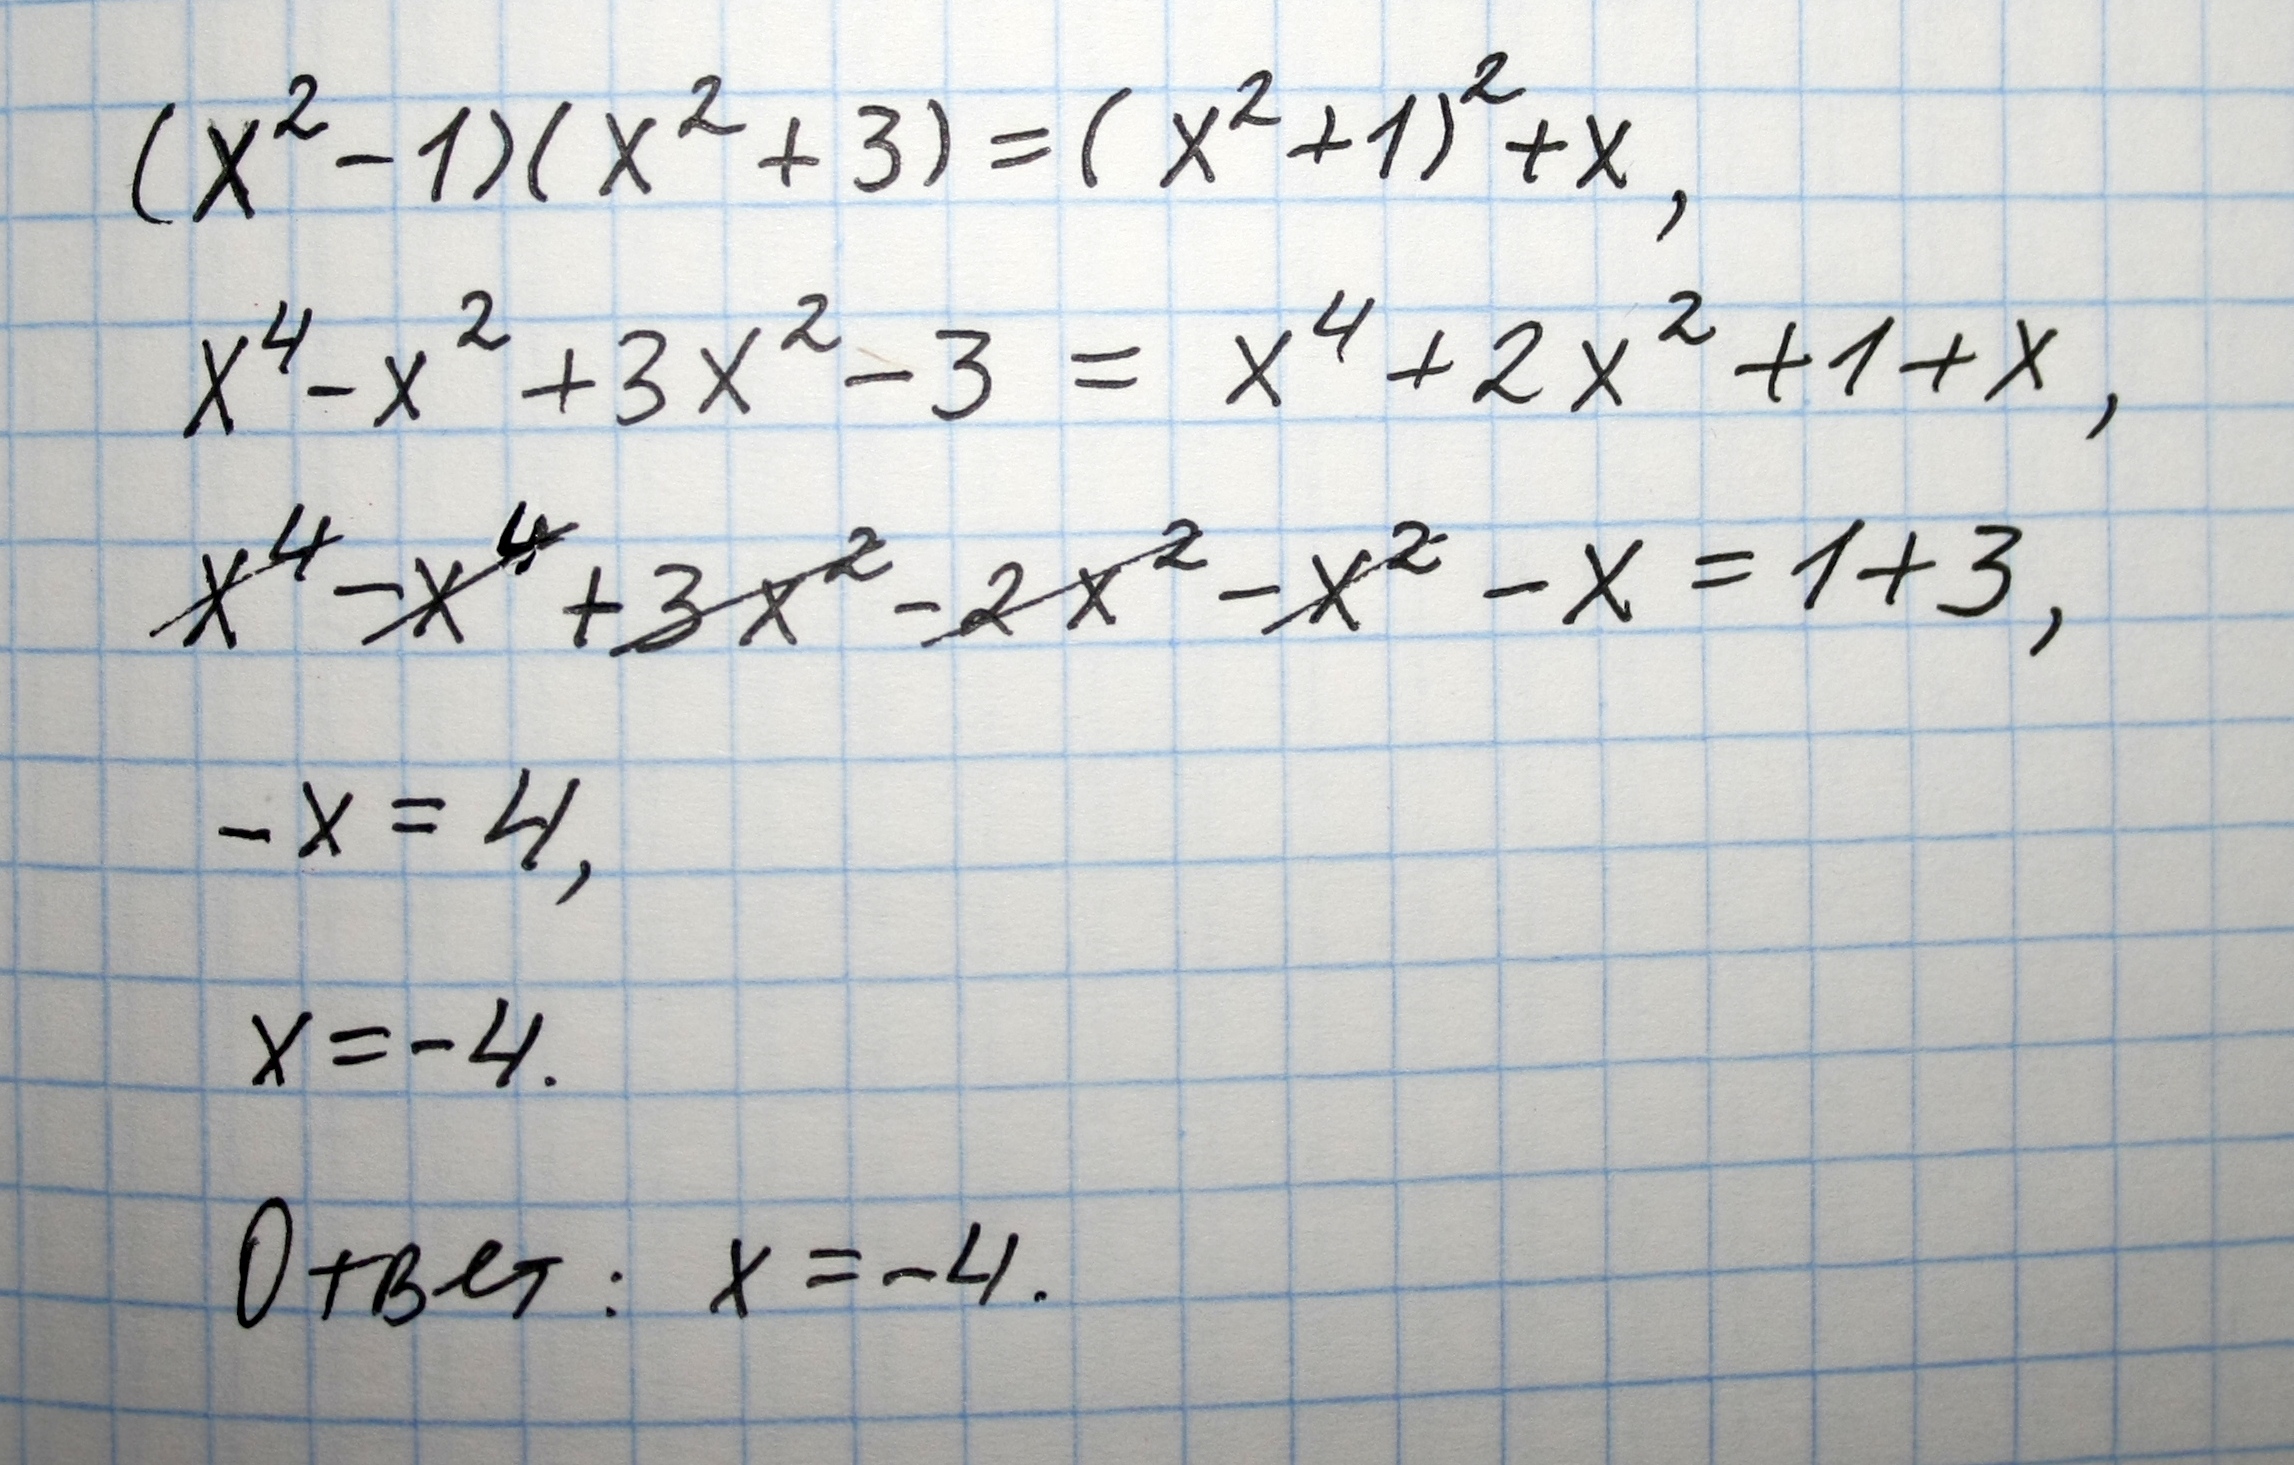 (x²-1)(x²+3)=(x²+1)²+x,
x⁴-x²+3x²-3=x⁴+2x²+1+x,
x⁴-x⁴+3x²-2x²-x²-x=1+3,
-x=4,
x=-4.
Ответ: x=-4.